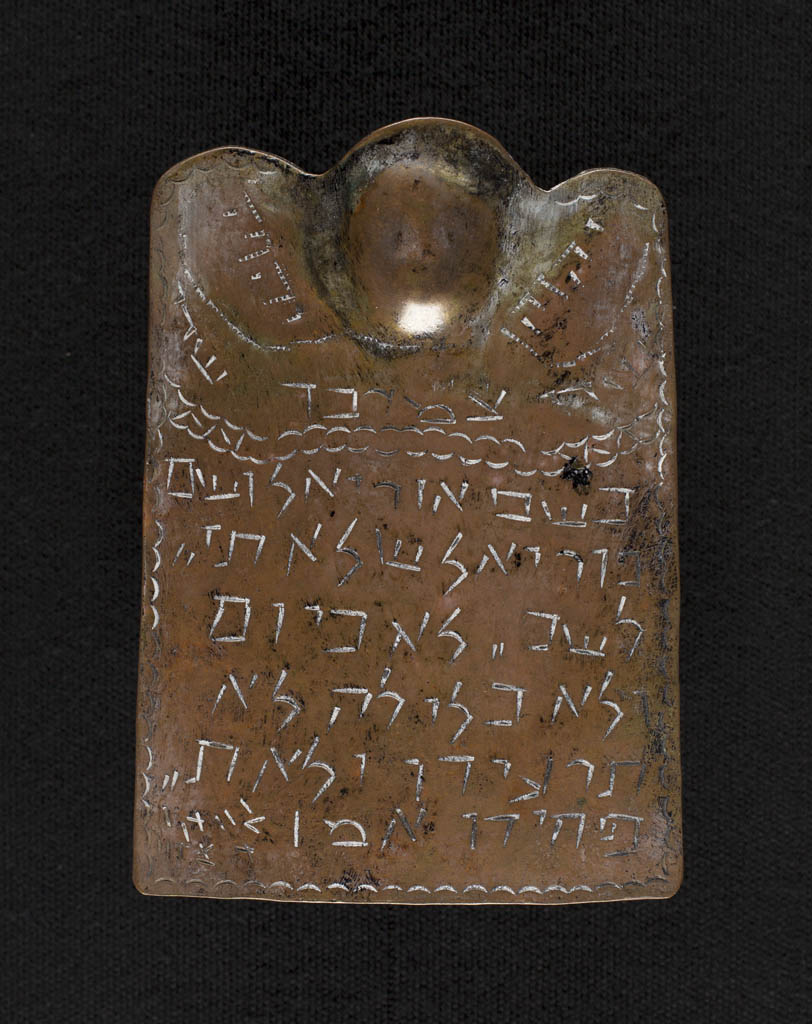 יהוה
צמרכד
בשם אוריאל ושם
נוריאל שלא תז״
לשב״ לא ביום
ולא בלילה לא
תרגידו ולא ת״
פחידו אמן